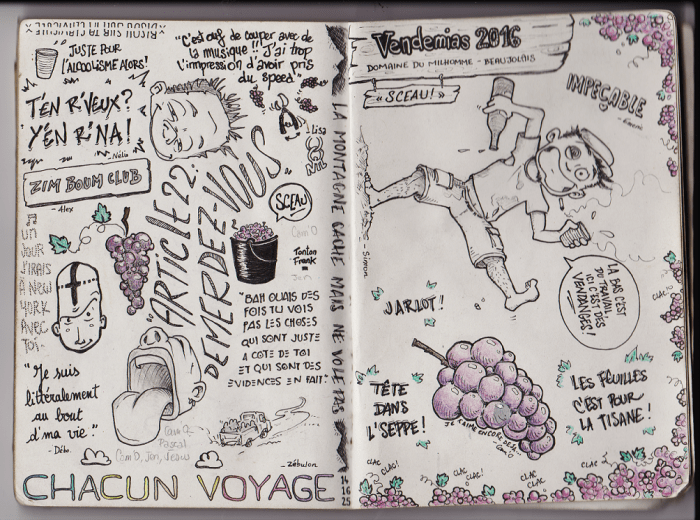 JUSTE POUR
L'ALCOOLISME ALORS!
"C'est ouf de couper avec de
la musique!! J'ai trop
l'impression d'avoir pris
du speed"
T'EN R'VEUX?
Y'EN R'NA!
- Nélio
- Lisa
ZIM BOUM CLUB
- Alex
ARTICLE 22:
DEMERDEZ-VOUS
SCEAU
Com'O
Tonton
Frank
UN
JOUR
J'IRAIS
A NEW
YORK
AVEC
TOI-
"Je suis
littéralement
au bout
d'ma vie."
- Déb.
"BAH OUAIS DES
FOIS TU VOIS
PAS LES CHOSES
QUI SONT JUSTE
A COTE DE TOI
ET QUI SONT DES
EVIDENCES EN FAIT."
- Zébulon
Pascal
Com'O, Jon, Jesus
CHACUN VOYAGE
14
16
25
LA MONTAGNE CACHE MAIS NE VOLE PAS
Vendemias 2016
DOMAINE DU MILHOMME - BEAUJOLAIS
"SCEAU!"
IMPEÇABLE
- Simon
LA BAS C'EST
DU TRAVAIL
ICI C'EST DES
VENDANGES!
JARLOT!
TÊTE
DANS
L'SEPPE!
JE T'AIME ENCORE DEJA...
Com'O
LES FEUILLES
C'EST POUR
LA TISANE!
CLAC
CLAC!
CLAC
CLAC!
CLAC
CLAC
CLAC!
CLAC
CLAC
CLAC!